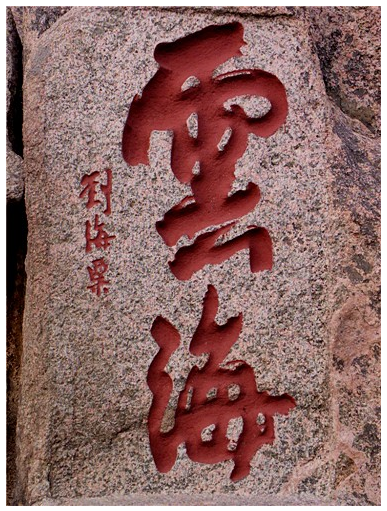 雲海
劉海粟